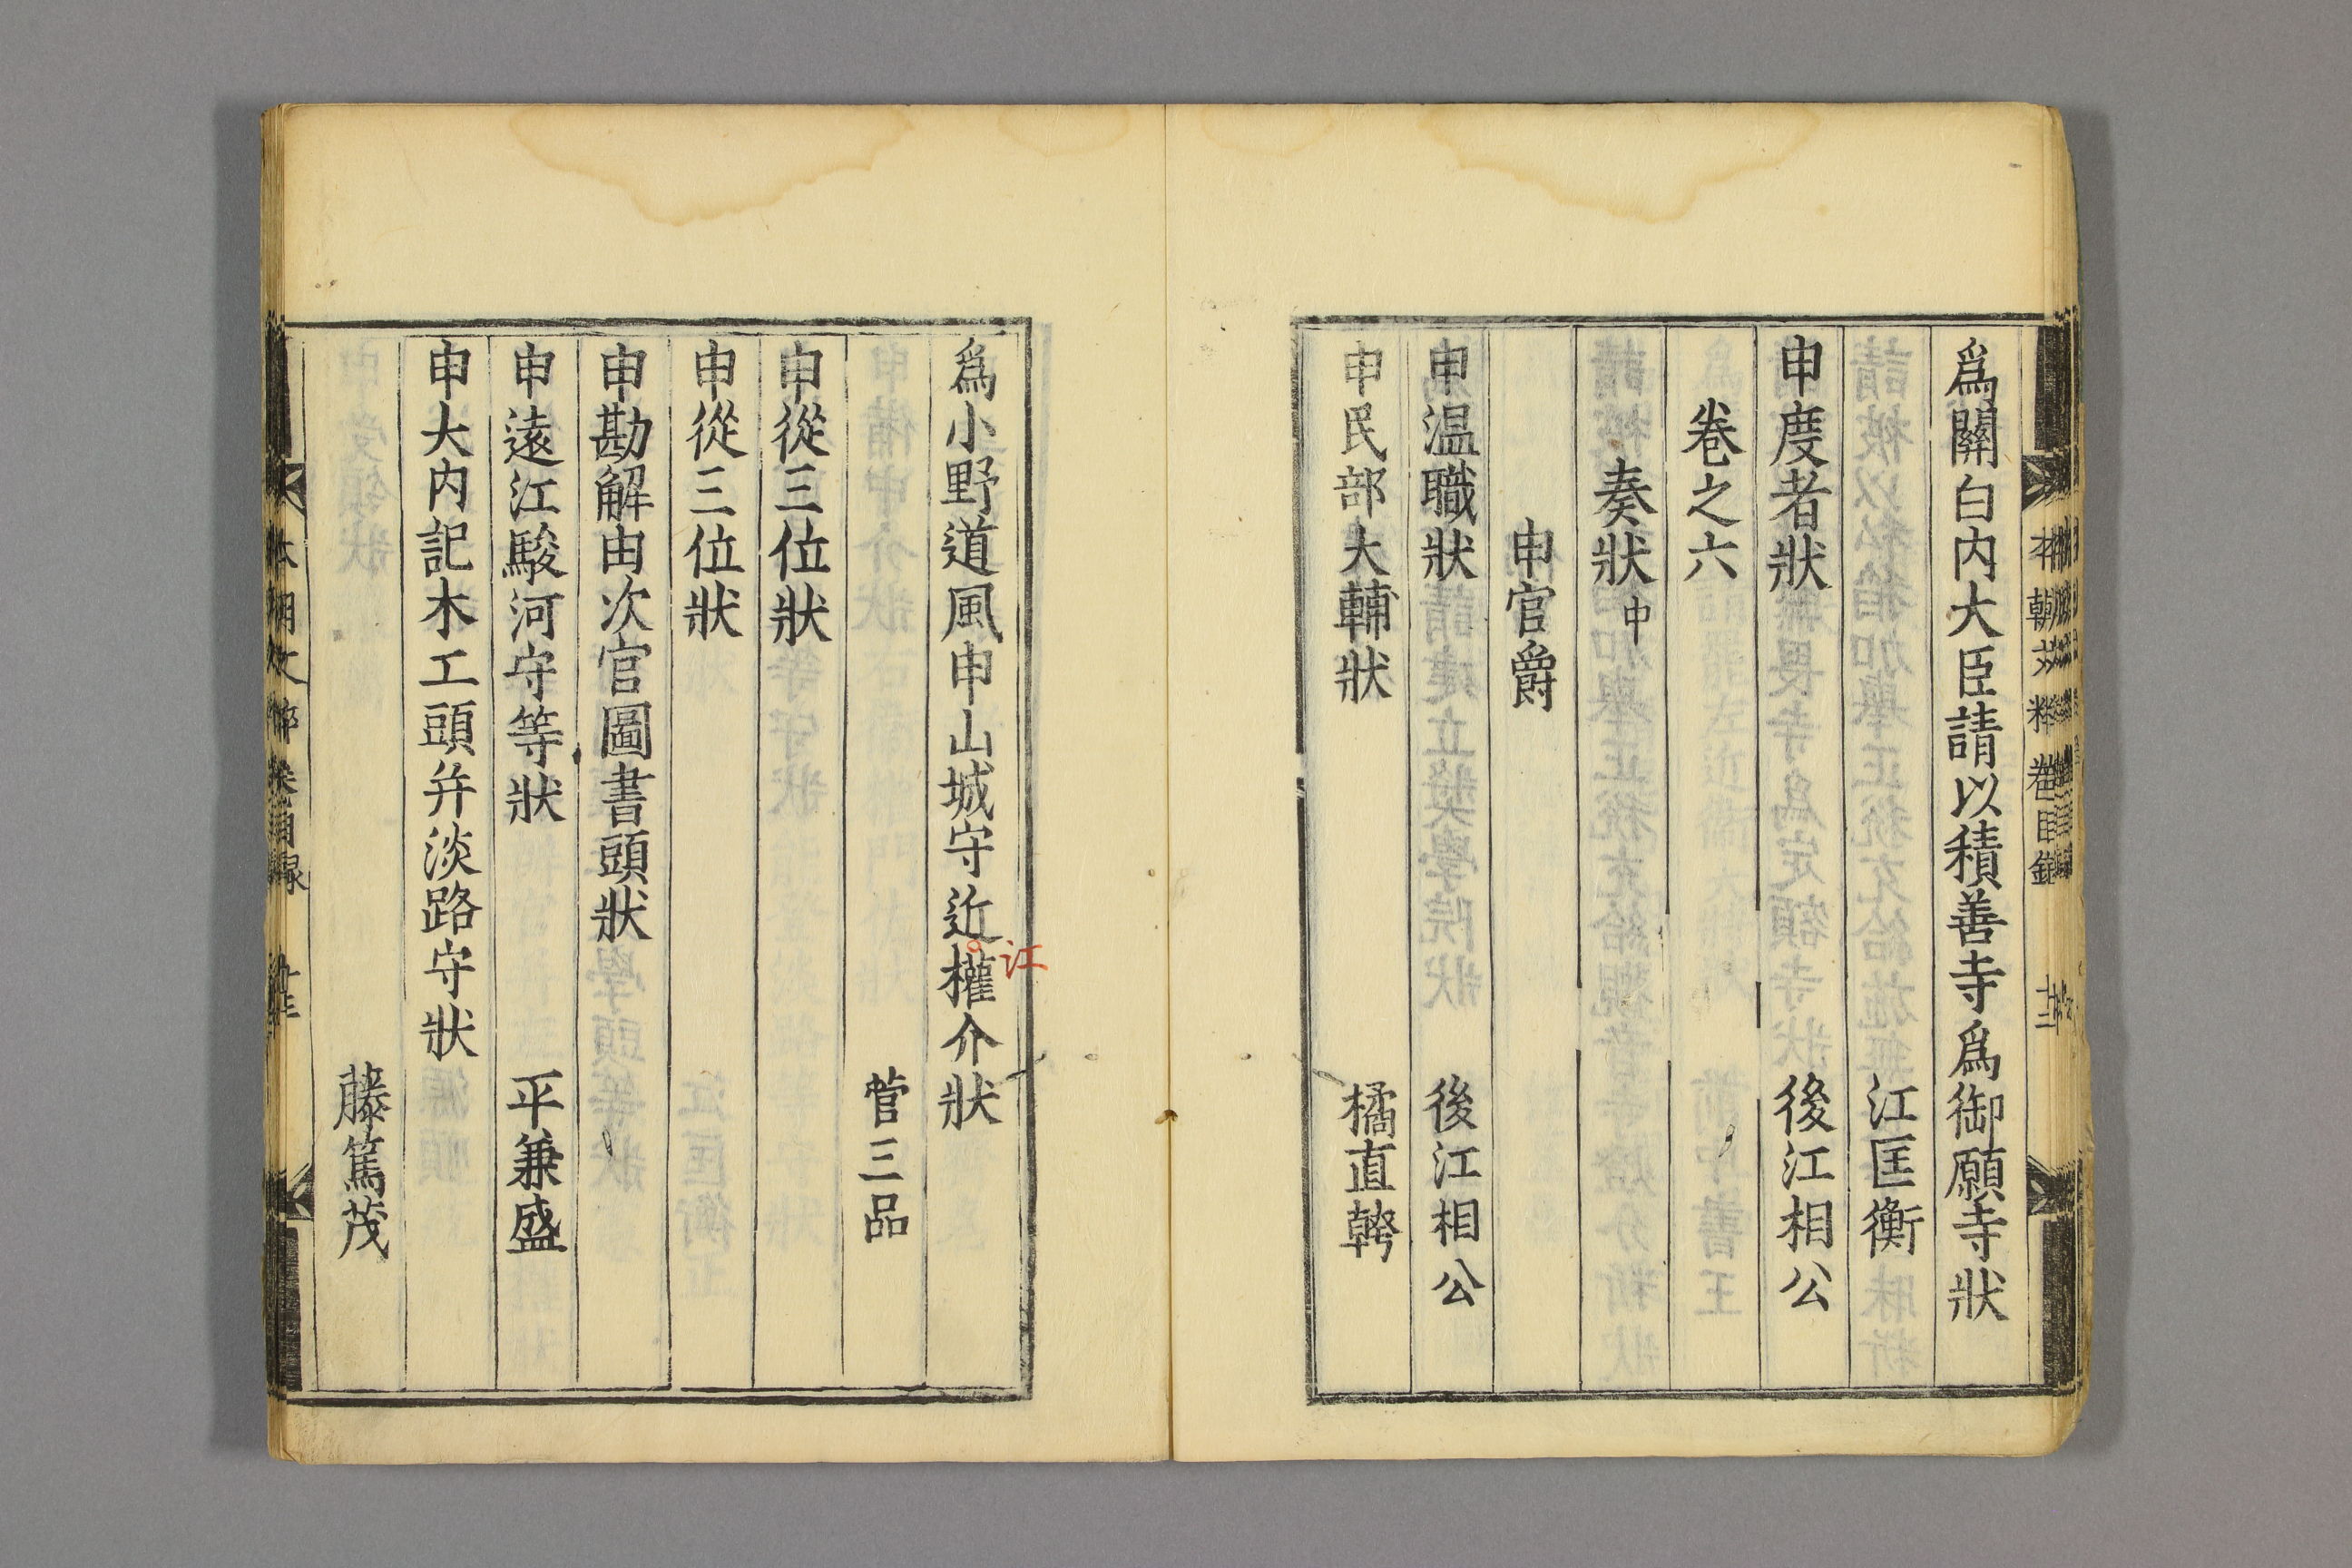 爲關白内大臣請以積善寺爲御願寺狀
江匡衡
申度者狀 後江相公
卷之六
奏狀中
申官爵
申温職狀 後江相公
申民部大輔狀 橘直幹
爲小野道風申山城守近權介狀
江
菅三品
申從三位狀
申從三位狀
申勘解由次官圖書頭狀
申遠江駿河守等狀 平兼盛
申大内記木工頭并淡路守狀
藤篤茂